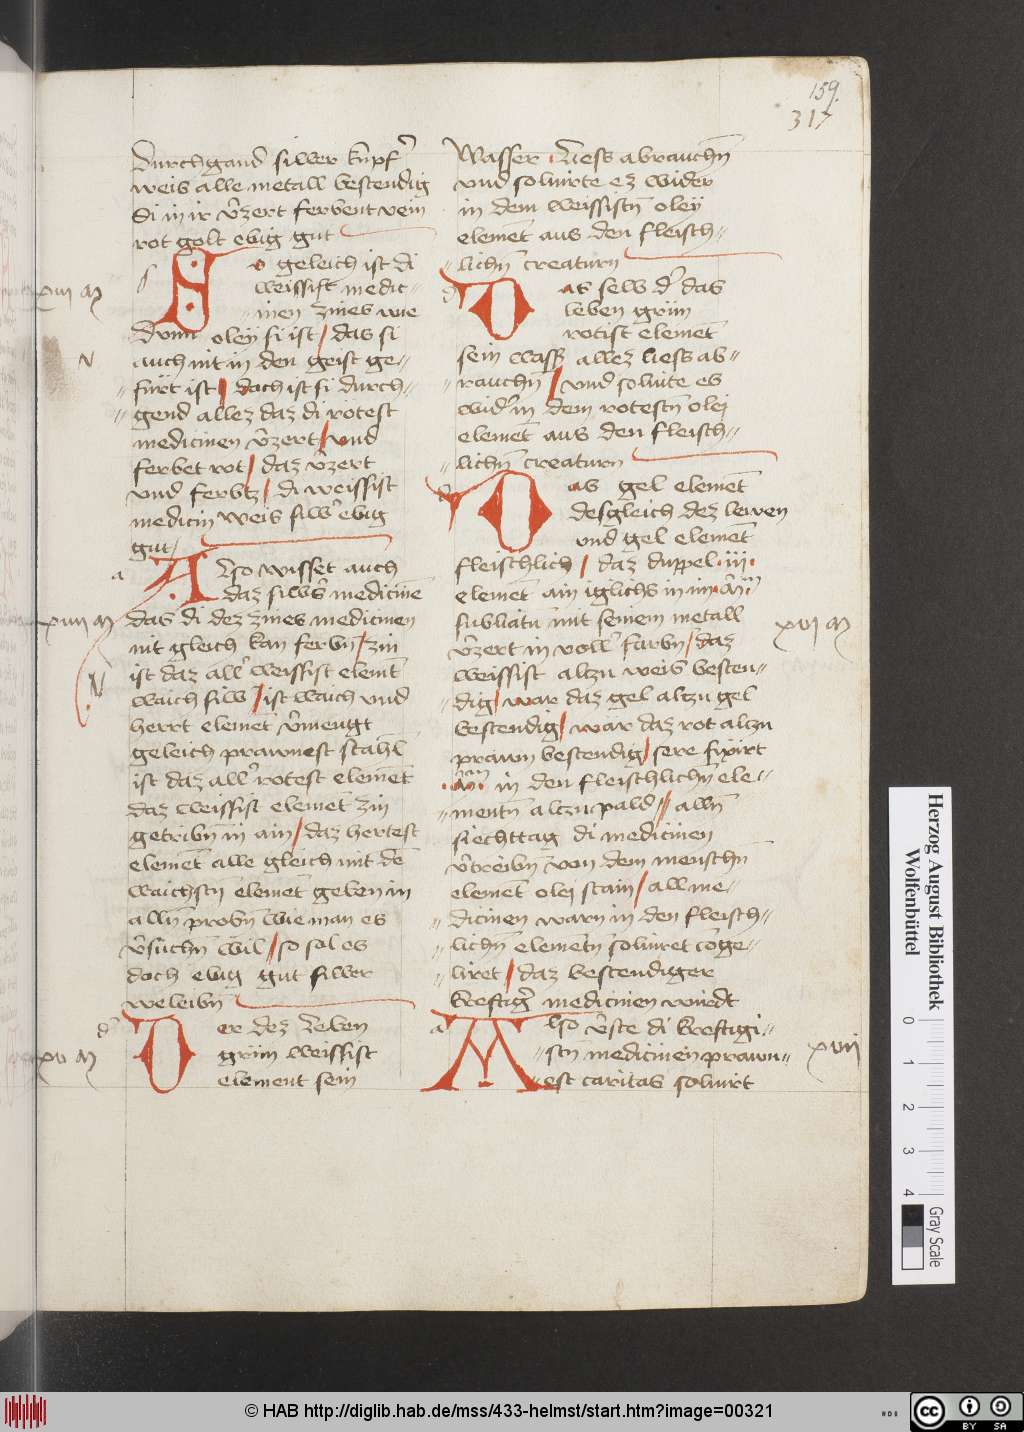 159.
317
durchgand silber kupfer
weis alle metall bestendig
di in ir v̄zert ferbent vein
rot golt ebig gut
So geleich ist di
weissist medic-
inen zines wie
dunn oley si ist / das si
auch nit in den geist ge-
fürt ist / doch ist si durch-
gend allez daz di rötest
medicinen v̄zert / und
ferbet rot / daz v̄zert
und ferbtz / di weissist
medicin weis silber ebig
gut /
xiiii
Also wisset auch
daz silbers medicine
das di dez zines medicinen
nit gleich kan ferbn / zin
ist daz aller weissist elemēt
waich silber / ist waich und
herrt elemēt v̄mengt
geleich prawnest stahel
ist daz aller rotest elemēt
daz weissist elemēt zin
getribn̄ in ain / daz hertest
elemēt alle gleich mit de
waichstn elemēt geben in
alln probn wie man es
v̄suchn wil // so sol es
doch ebig gut silber
weleibn
xv
Der dez leben
grün weissist
element sein
wasser. liess abrauchn̄
und soluirte ez wider
in dem weissistn̄ oley
elemēt aus den fleisch-
lichn̄ creaturn
Das selb der das
leben grün
rotist elemēt
sein wasser allez liess ab-
rauchn̄ / und soluirte es
wider in dem rotestn̄ olei
elemēt aus den fleisch-
lichn̄ creaturn
Das gel elemēt
desgleich dez lewen
und gel elemēt
fleischlich / daz duppel iij
elemēt ain iglichs in im
sublimatum mit seinem metall
v̄zert in voller farbn / daz
weissist alzu weis besten-
dig / war daz gel alzu gel
bestendig / war daz rot alzu
prawn bestendig / sere fixiirt
in den fleischlichn̄ ele-
mentn̄ alczu pald // alln̄
siechttag di medicinen
v̄treibn̄ von dem menschn̄
elemēt olei stain / all me-
dicinen warn in den fleisch-
lichn̄ elemētn̄ soluiret coge-
liret / daz bestendiger
kreftiger medicinen wurdt
xvi
Also v̄ste di kreftigi-
stn̄ medicinen prawn-
est caritas soluirt
xvii
Herzog August Bibliothek
Wolfenbüttel
0 1 2 3 4
Gray Scale
© HAB http://diglib.hab.de/mss/433-helmst/start.htm?image=00321
HDB
CC BY SA